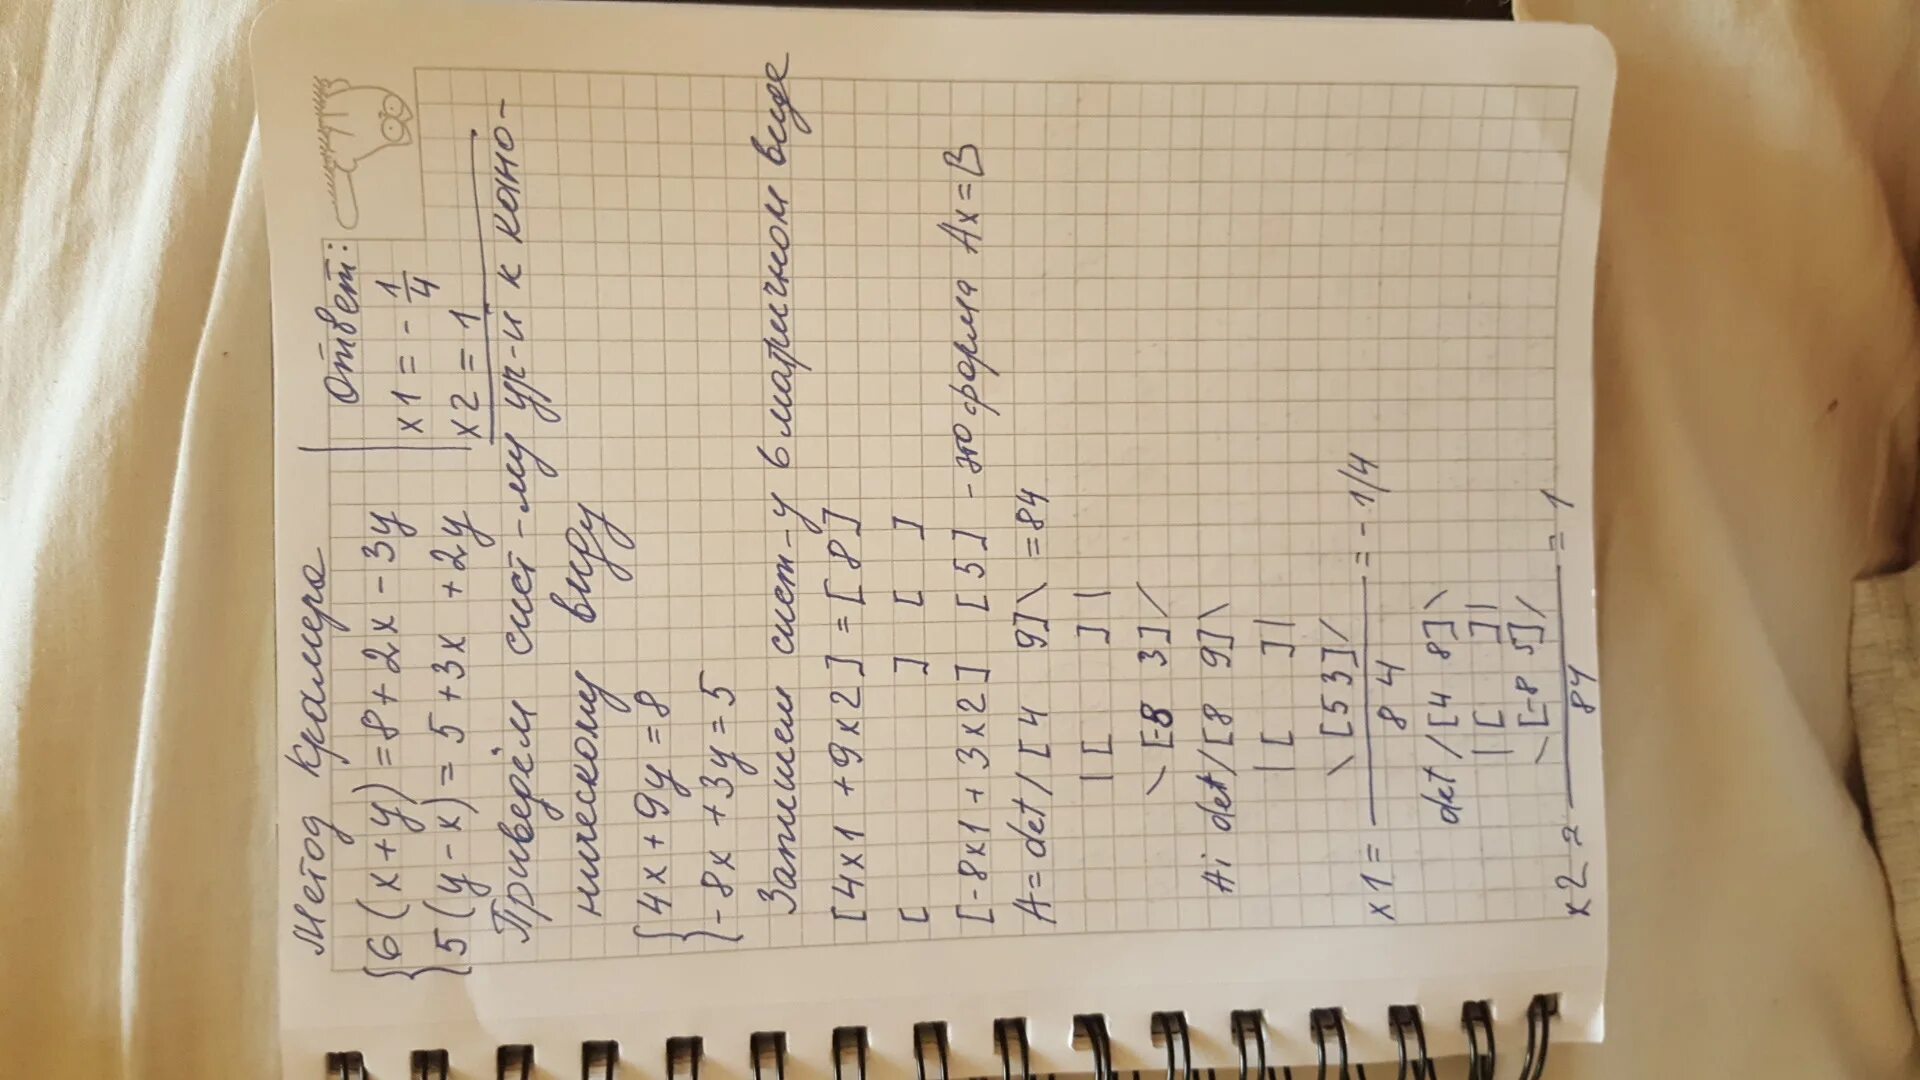 Метод Крамера
{6(x+y)=8+2x-3y
}5(y-x)=5+3x+2y
Ответ:
x1=-1/4
x2=1
Приведём сист-му ур-и к кано-
ническому виду
{4x+9y=8
}-8x+3y=5
Запишем сист-у в матричном виде
[4x1+9x2]=[8]
[ ] [ ]
[-8x1+3x2] [5] - это форма Ax=B
A=det/[4 9]\=84
|[ ]|
\[-8 3]/
Ai det/[8 9]\
|[ ]|
\[5 3]/
x1= ──── =-1/4
84
det/[4 8]\
|[ ]|
\[-8 5]/
x2= ──── =1
84